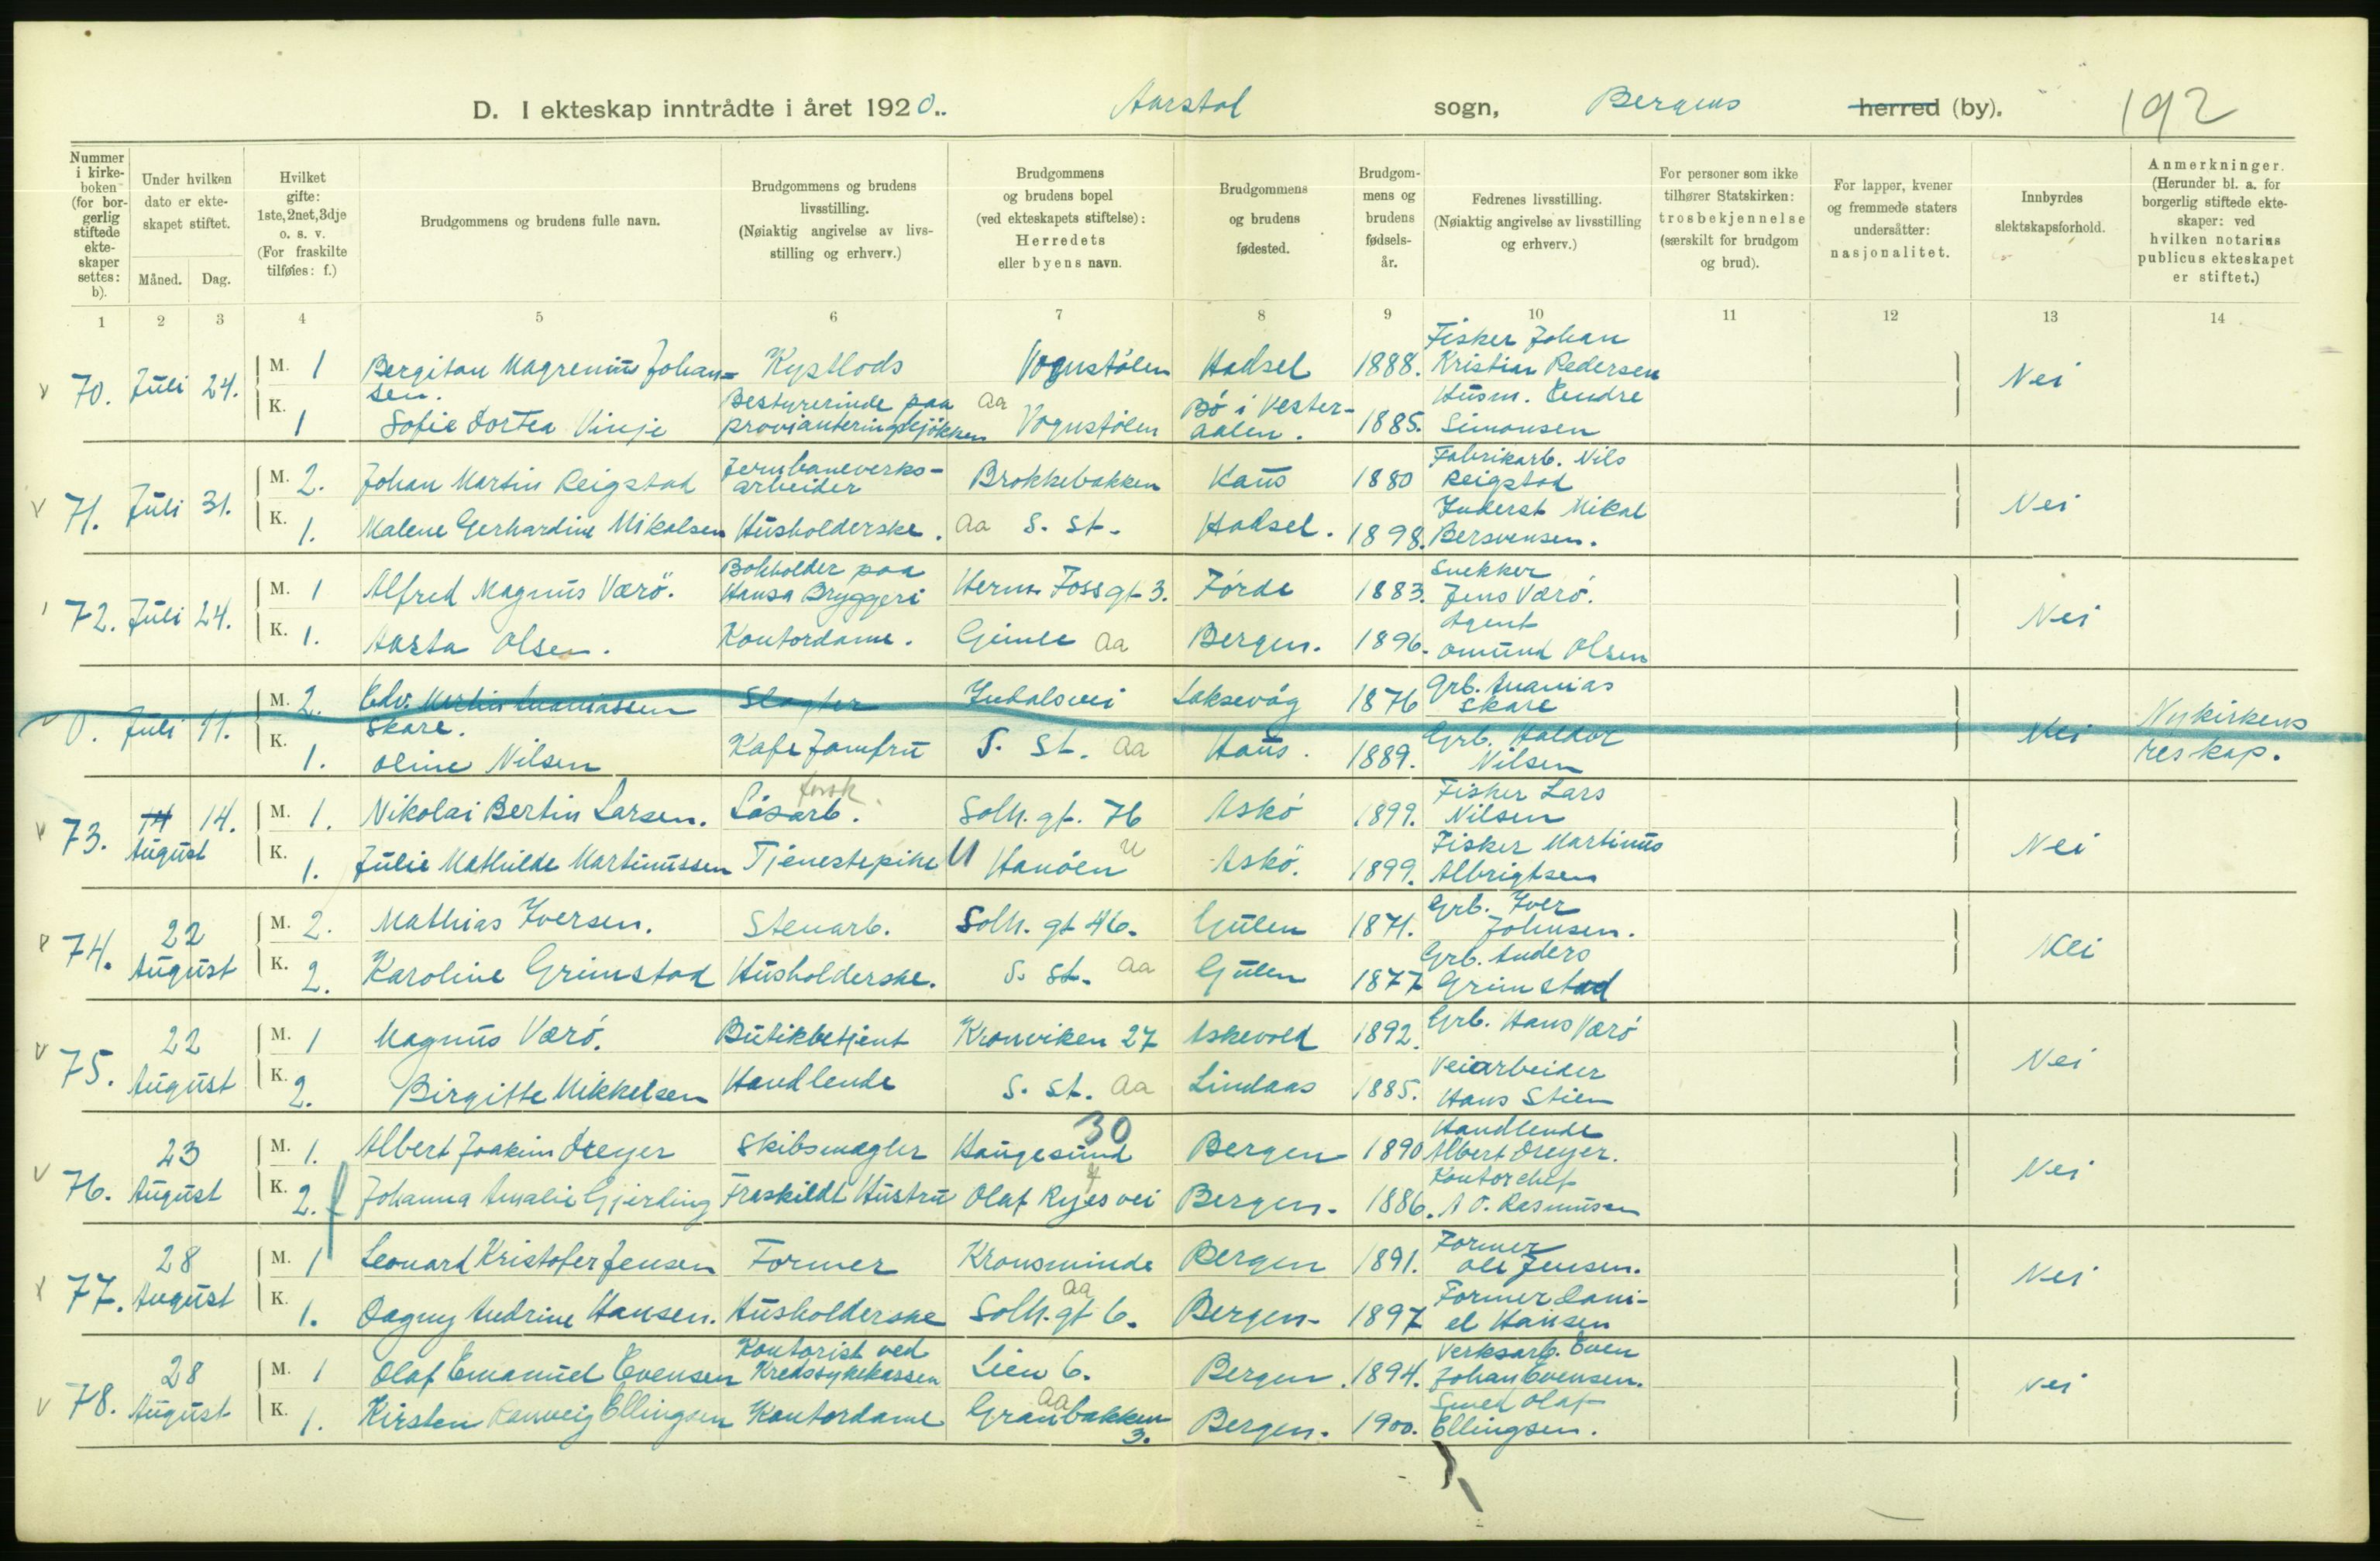 D. I ekteskap inntrådte i året 1920.. Aarstad sogn, Bergens herred (by). 192
Nummer i kirkeboken (for borgerlig stiftede ekteskaper settes: b).
Under hvilken dato er ekteskapet stiftet.
Måned. Dag.
Hvilket gifte: 1ste, 2net, 3dje o. s. v. (For fraskilte tilføies: f.)
Brudgommens og brudens fulle navn.
Brudgommens og brudens livsstilling. (Nøiaktig angivelse av livsstilling og erhverv.)
Brudgommens og brudens bopel (ved ekteskapets stiftelse): Herredets eller byens navn.
Brudgommens og brudens fødested.
Brudgommens og brudens fødselsår.
Fedrenes livsstilling. (Nøiaktig angivelse av livsstilling og erhverv.)
For personer som ikke tilhører Statskirken: trosbekjennelse (særskilt for brudgom og brud).
For lapper, kvener og fremmede staters undersåtter: nasjonalitet.
Innbyrdes slektskapsforhold.
Anmerkninger. (Herunder bl. a. for borgerlig stiftede ekteskaper: ved hvilken notarius publicus ekteskapet er stiftet.)
1 2 3 4 5 6 7 8 9 10 11 12 13 14
70. Juli 24. M. 1 Bergitan Magrenius Johansen. Kystlods Vognstølen Hadsel 1888. Fisker Johan Kristian Pedersen Nei
K. 1 Sofie Dortea Vinje Bestyrerinde paa provianteringskjökken aa Vognstølen Bö i Vesteraalen. 1885. Husm. Endre Simonsen
71. Juli 31. M. 2. Johan Martin Reigstad Jernbaneverksarbeider Brokkebakken Haus 1880 Fabrikarb. Nils Reigstad Nei
K. 1. Malene Gerhardine Mikalsen Husholderske. aa S. st. Hadsel. 1898. Inderst Mikal Bersvensen.
72. Juli 24. M. 1 Alfred Magnus Værö. Bokholder paa Hansa Bryggeri Herm. Foss gt 3. Förde 1883. Snekker Jens Værö. Nei
K. 1. Aasta Olsen. Kontordame. Gimle aa Bergen. 1896. Agent Omund Olsen
0. Juli 11. M. 2. Edv. Martin Ananiassen Skare. Slagter Indalsvei Laksevåg 1876 Grb. Ananias Skare Nei Nykirkens reskap.
K. 1. Oline Nilsen Kafe Jomfru S. St. aa Haus. 1889. Grb. Haldor Nilsen
73. 14 August 14. M. 1. Nikolai Bertin Larsen. Lösarb. forsk. Solh. gt. 76 Askö 1899. Fisker Lars Nilsen Nei
K. 1. Julie Mathilde Martinussen Tjenestepike U Hanöen U Askö. 1899. Fisker Martinus Albrigtsen
74. 22 August M. 2. Mathias Iversen. Stenarb. Solh. gt 46. Gulen 1871. Grb. Iver Johnsen. Nei
K. 2. Karoline Grimstad Husholderske. S. St. aa Gulen 1877 Grb. Anders Grimstad
75. 22 August M. 1 Magnus Værö. Butikbetjent Kronviken 27 Askevold 1892. Grb. Hans Værö Nei
K. 2. Birgitte Mikkelsen Handlende S. St. aa Lindaas 1885. Veiarbeider Hans Stien
76. 23 August M. 1. Albert Joakim Dreyer Skibsmægler Haugesund 30 Bergen 1890 Handlende Albert Dreyer. Nei
K. 2. f Johanna Amalie Gjerding Fraskildt Hustru Olaf Ryes vei 4 Bergen. 1886. Kontorchef A O. Rasmussen
77. 28 August M. 1 Leonard Kristofer Jensen Former Kronsminde Bergen 1891. Former Ole Jensen. Nei
K. 1. Dagny Andrine Hansen. Husholderske Solh. gt 6. aa Bergen. 1897 Former Daniel Hansen
78. 28 August M. 1 Olaf Emanuel Evensen Kontorist ved Kredssykekassen Lien 6. Bergen. 1894. Verksarb. Even Johan Evensen. Nei
K. 1. Kirsten Ranveig Ellingsen Kontordame Granbakken 3. aa Bergen. 1900. Smed Olaf Ellingsen.